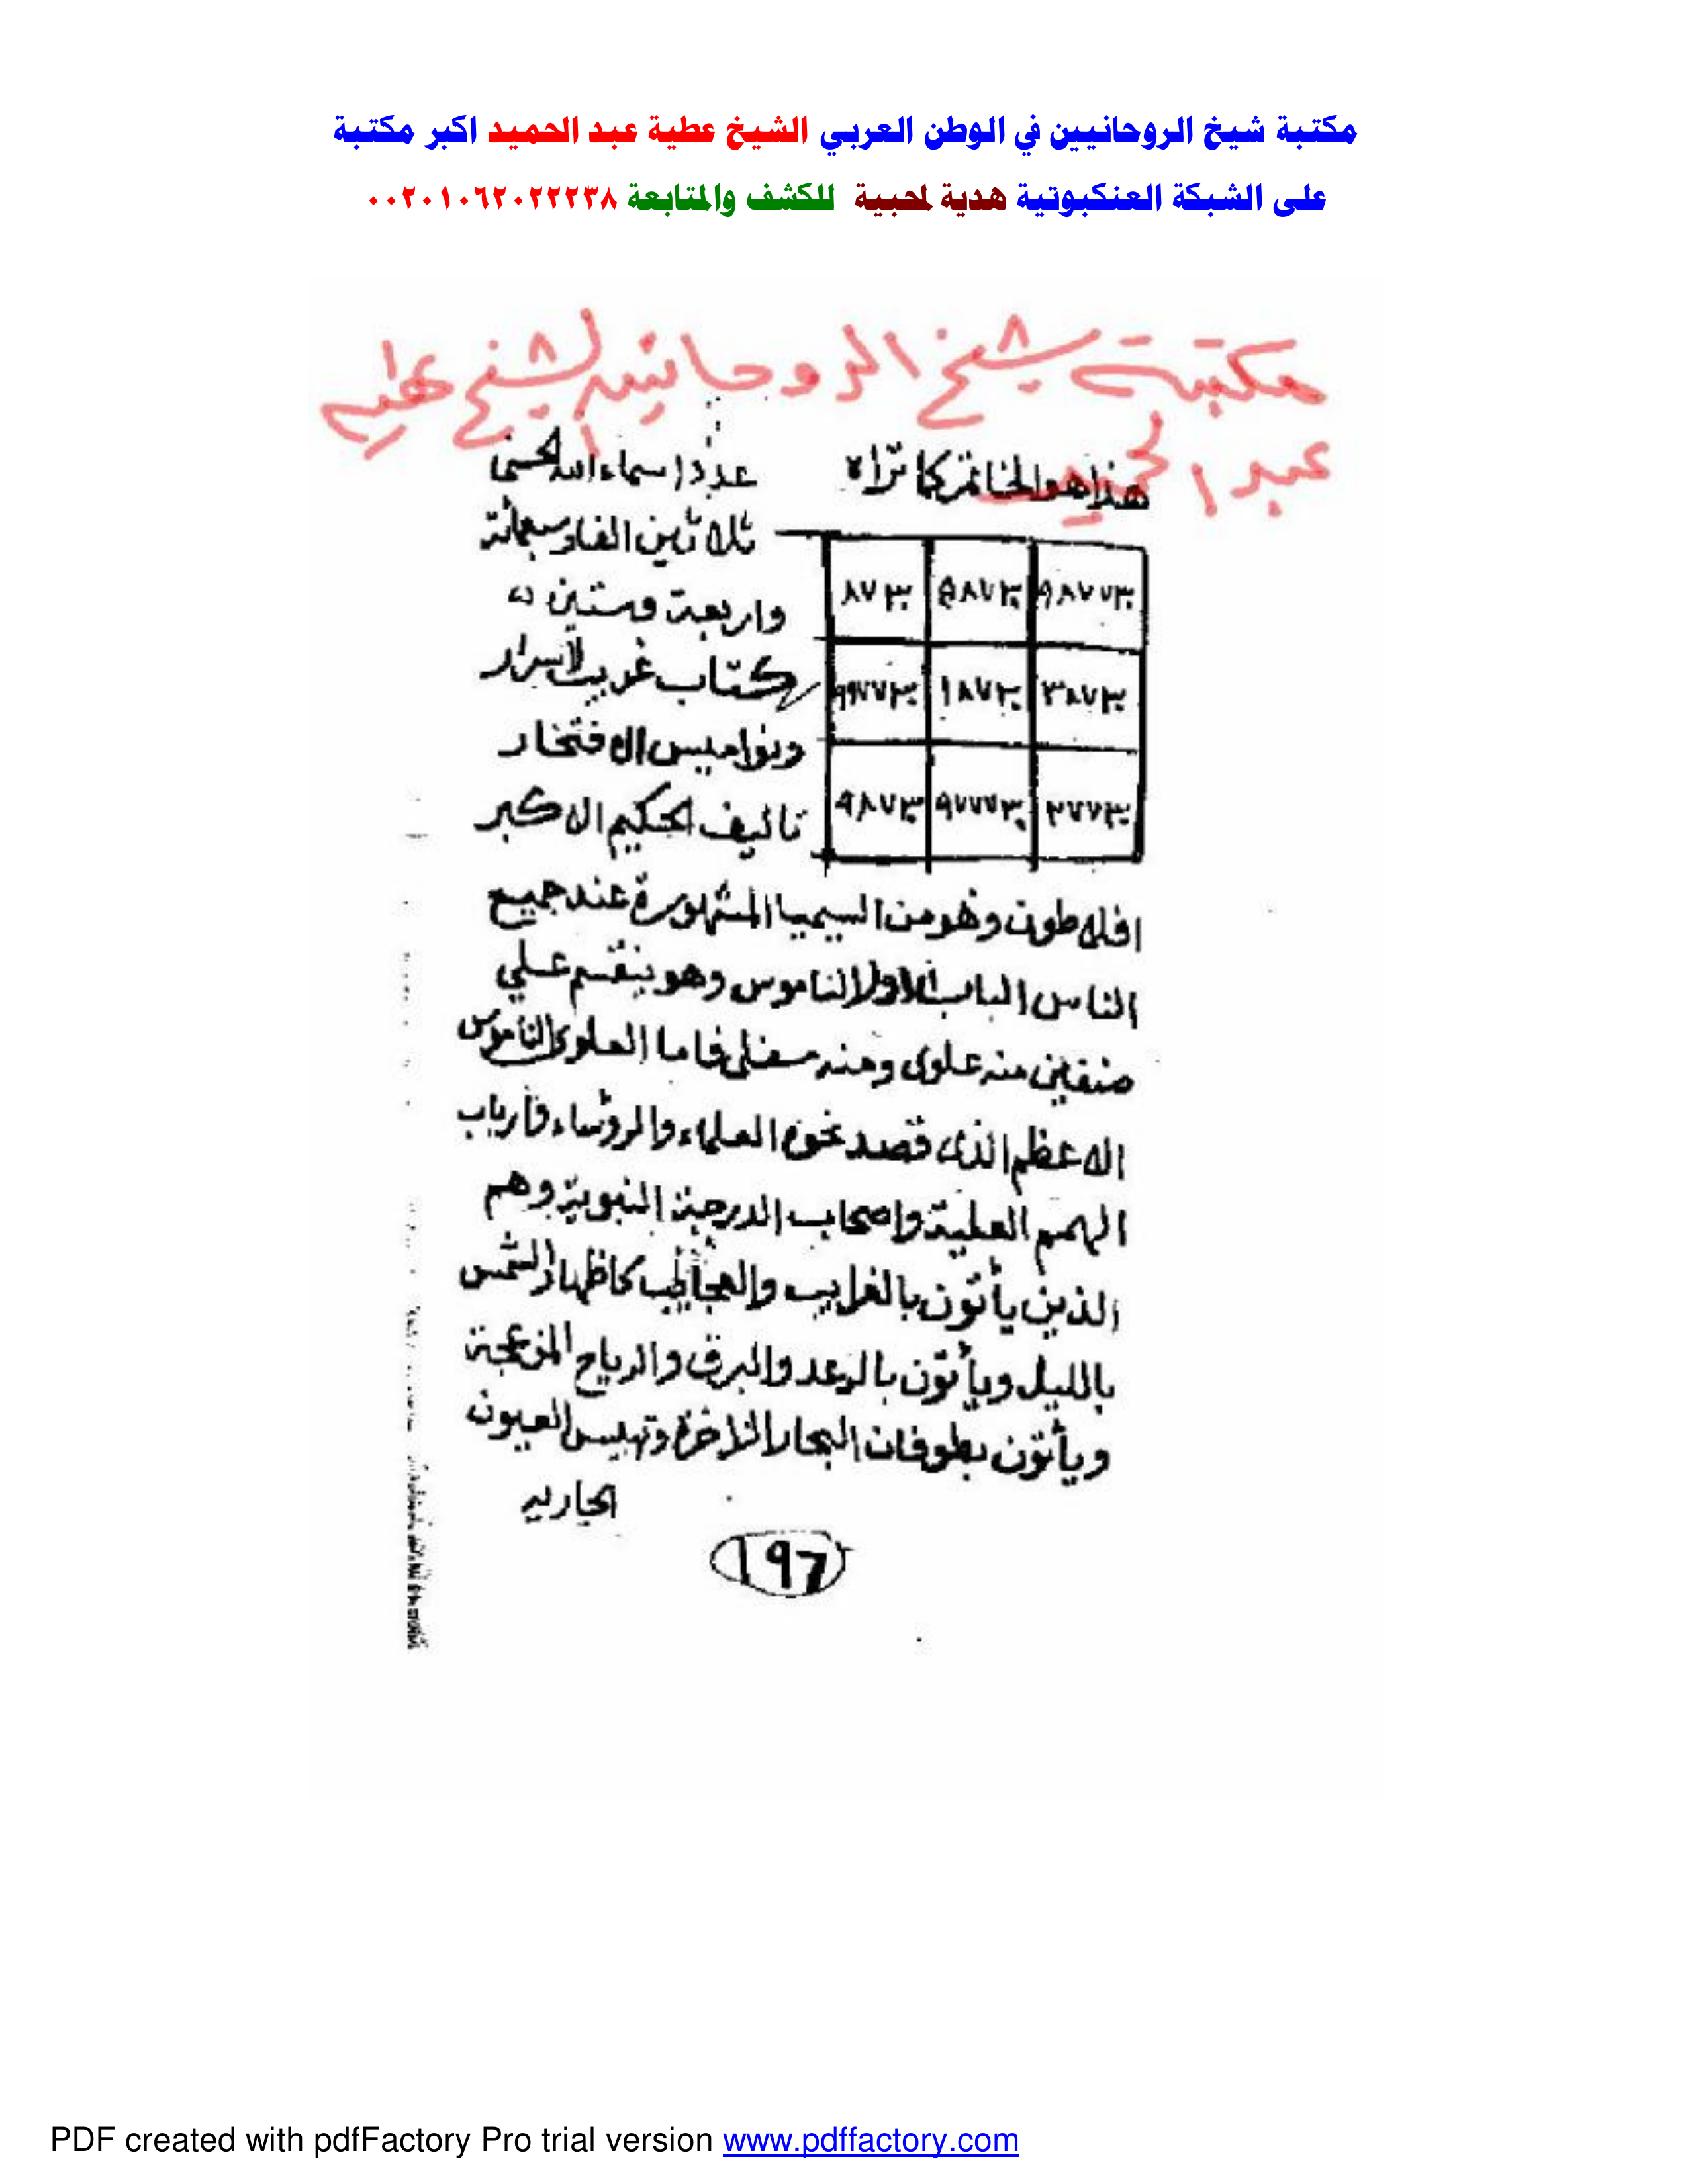 مكتبة شيخ الروحانيين في الوطن العربي الشيخ عطية عبد الحميد اكبر مكتبة
على الشبكة العنكبوتية هدية لمحبية للكشف والمتابعة ٠٠٢٠١٠٦٢٠٢٢٢٣٨
مكتبة شيخ الروحانين الشيخ عطيه
عبد الحميد
هذا هو الخاتم كما تراه
عدد اسماء الله الحسنى
ثلاثين الف وسبعمائة
واربعة وستين
كتاب غريب الاسرار
ونواميس الافتخار
تاليف الحكيم الاكبر
افلاطون وهو من السيميا المشهورة عند جميع
الناس الباب الاول الناموس وهو ينقسم علي
صنفين منه علوى ومنه سفلى فاما العلوى الناموس
الاعظم الذى قصد نحوه العلماء والروساء وارباب
الهمم العلية واصحاب الدرجة النبوية وهم
الذين يأتون بالغرايب والعجائب كاظهار الشمس
بالليل ويأتون بالرعد والبرق والرياح المزعجة
ويأتون بطوفان البحار الزاخرة وتيبيس العيون
الجاريه
197
PDF created with pdfFactory Pro trial version www.pdffactory.com